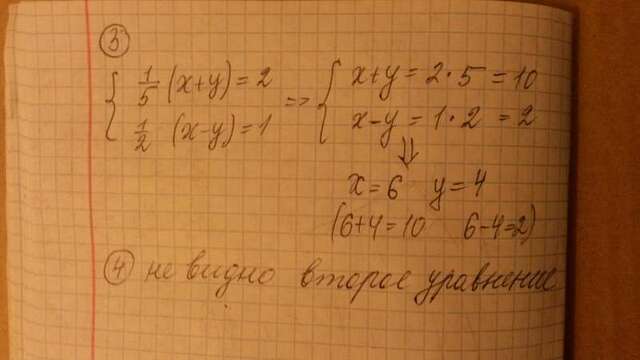 ③
{ 1/5 (x+y)=2 => { x+y=2·5=10
1/2 (x-y)=1 x-y=1·2=2
⇓
x=6 y=4
(6+4=10 6-4=2)
④ не видно второе уравнение